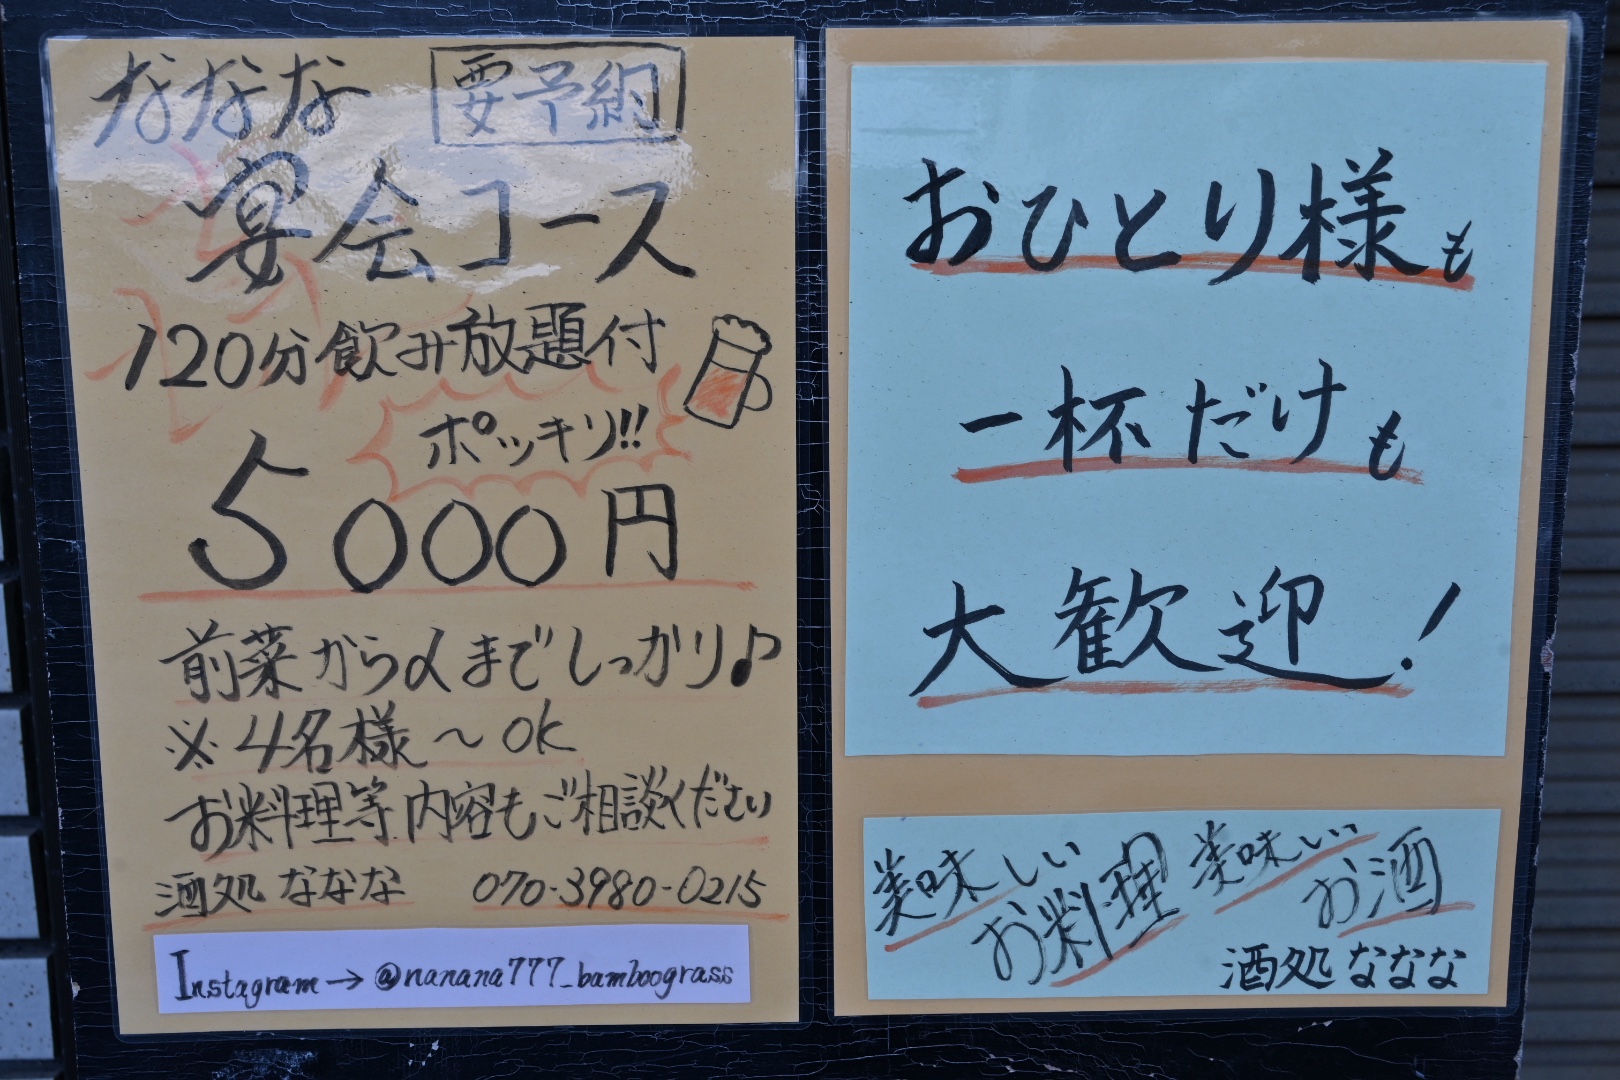 ななな 要予約
宴会コース
120分飲み放題付
ポッキリ!!
5000円
前菜から〆までしっかり♪
※4名様〜OK
お料理等内容もご相談ください
酒処 ななな 070-3980-0215
Instagram→@nanana777_bamboograss
おひとり様も
一杯だけも
大歓迎!
美味しい
お料理
美味しい
お酒
酒処 ななな